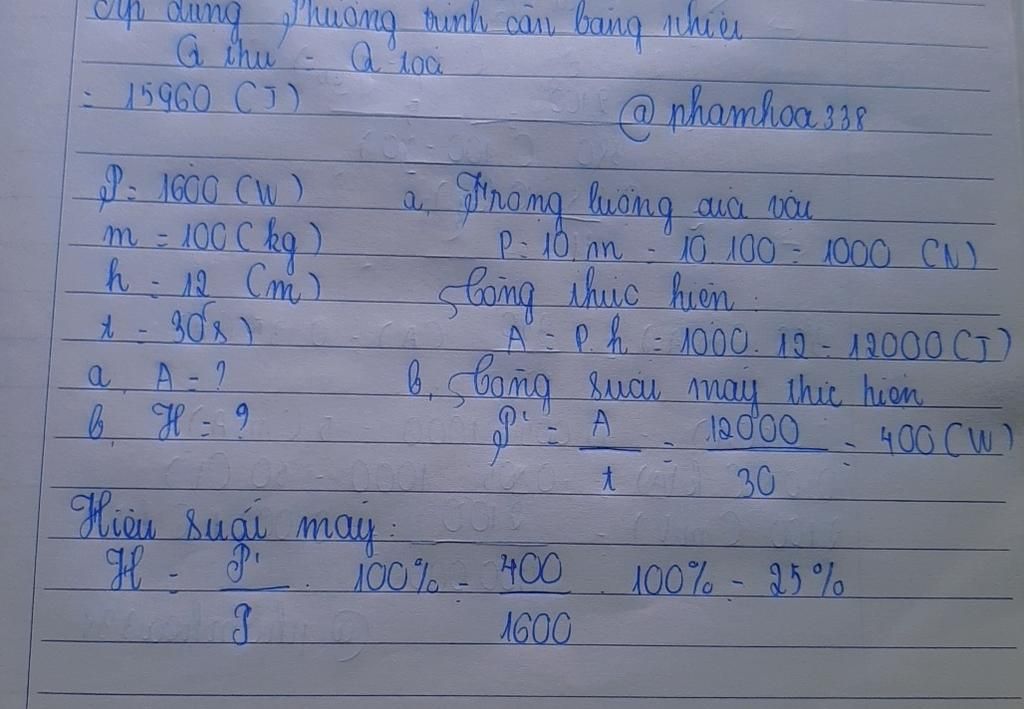 Áp dụng phương trình cân bằng nhiệt
Q thu = Q toả
= 15960 (J)
@phamhoa338
P = 1600 (W)
a, Trọng lượng của vâu
m = 100 (kg)
P = 10.m = 10.100 = 1000 (N)
h = 12 (m)
Công thực hiện:
t = 30(s)
A = P.h = 1000.12 = 12000 (J)
a, A = ?
b, Công suất máy thực hiện
b, H = ?
P' = A/t = 12000/30 = 400 (W)
Hiệu suất máy:
H = P'/P . 100% = 400/1600 . 100% = 25%